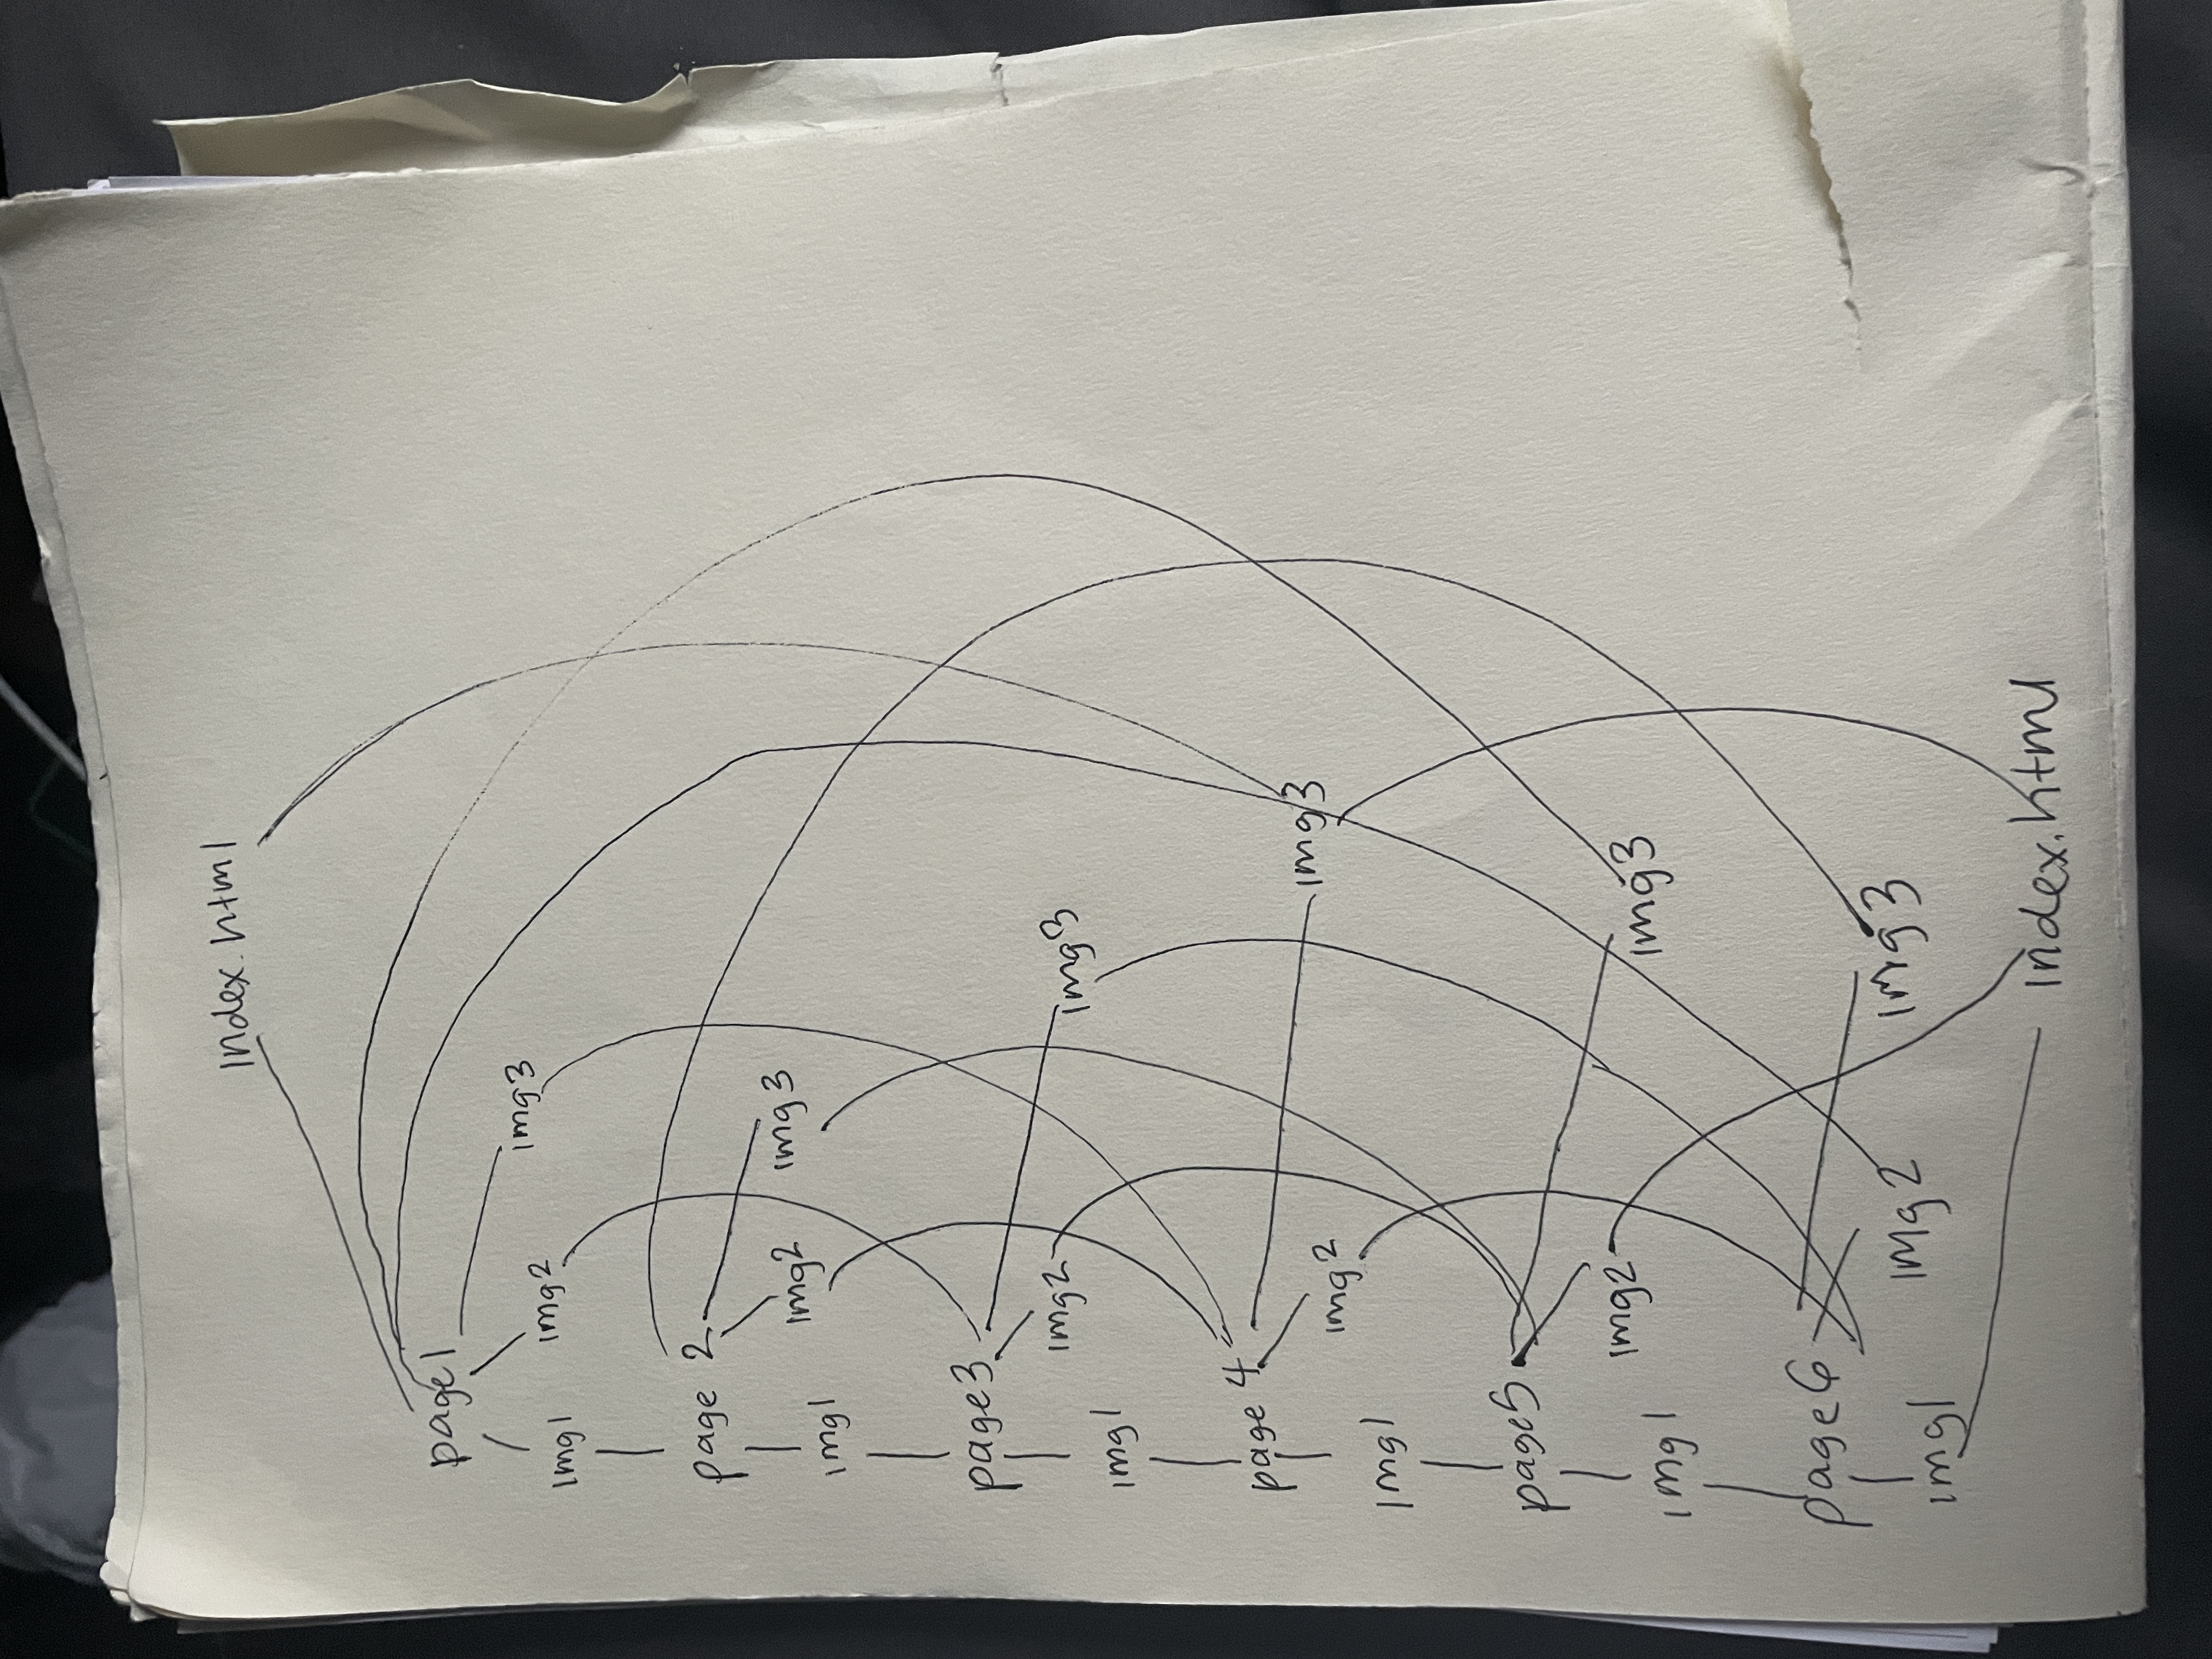 index.html
page1
img1 img2 img3
page 2
img1 img2 img3
page3
img1 img2 img3
page 4
img1 img2 img3
page5
img1 img2 img3
page6
img1 img2 img3
index.html